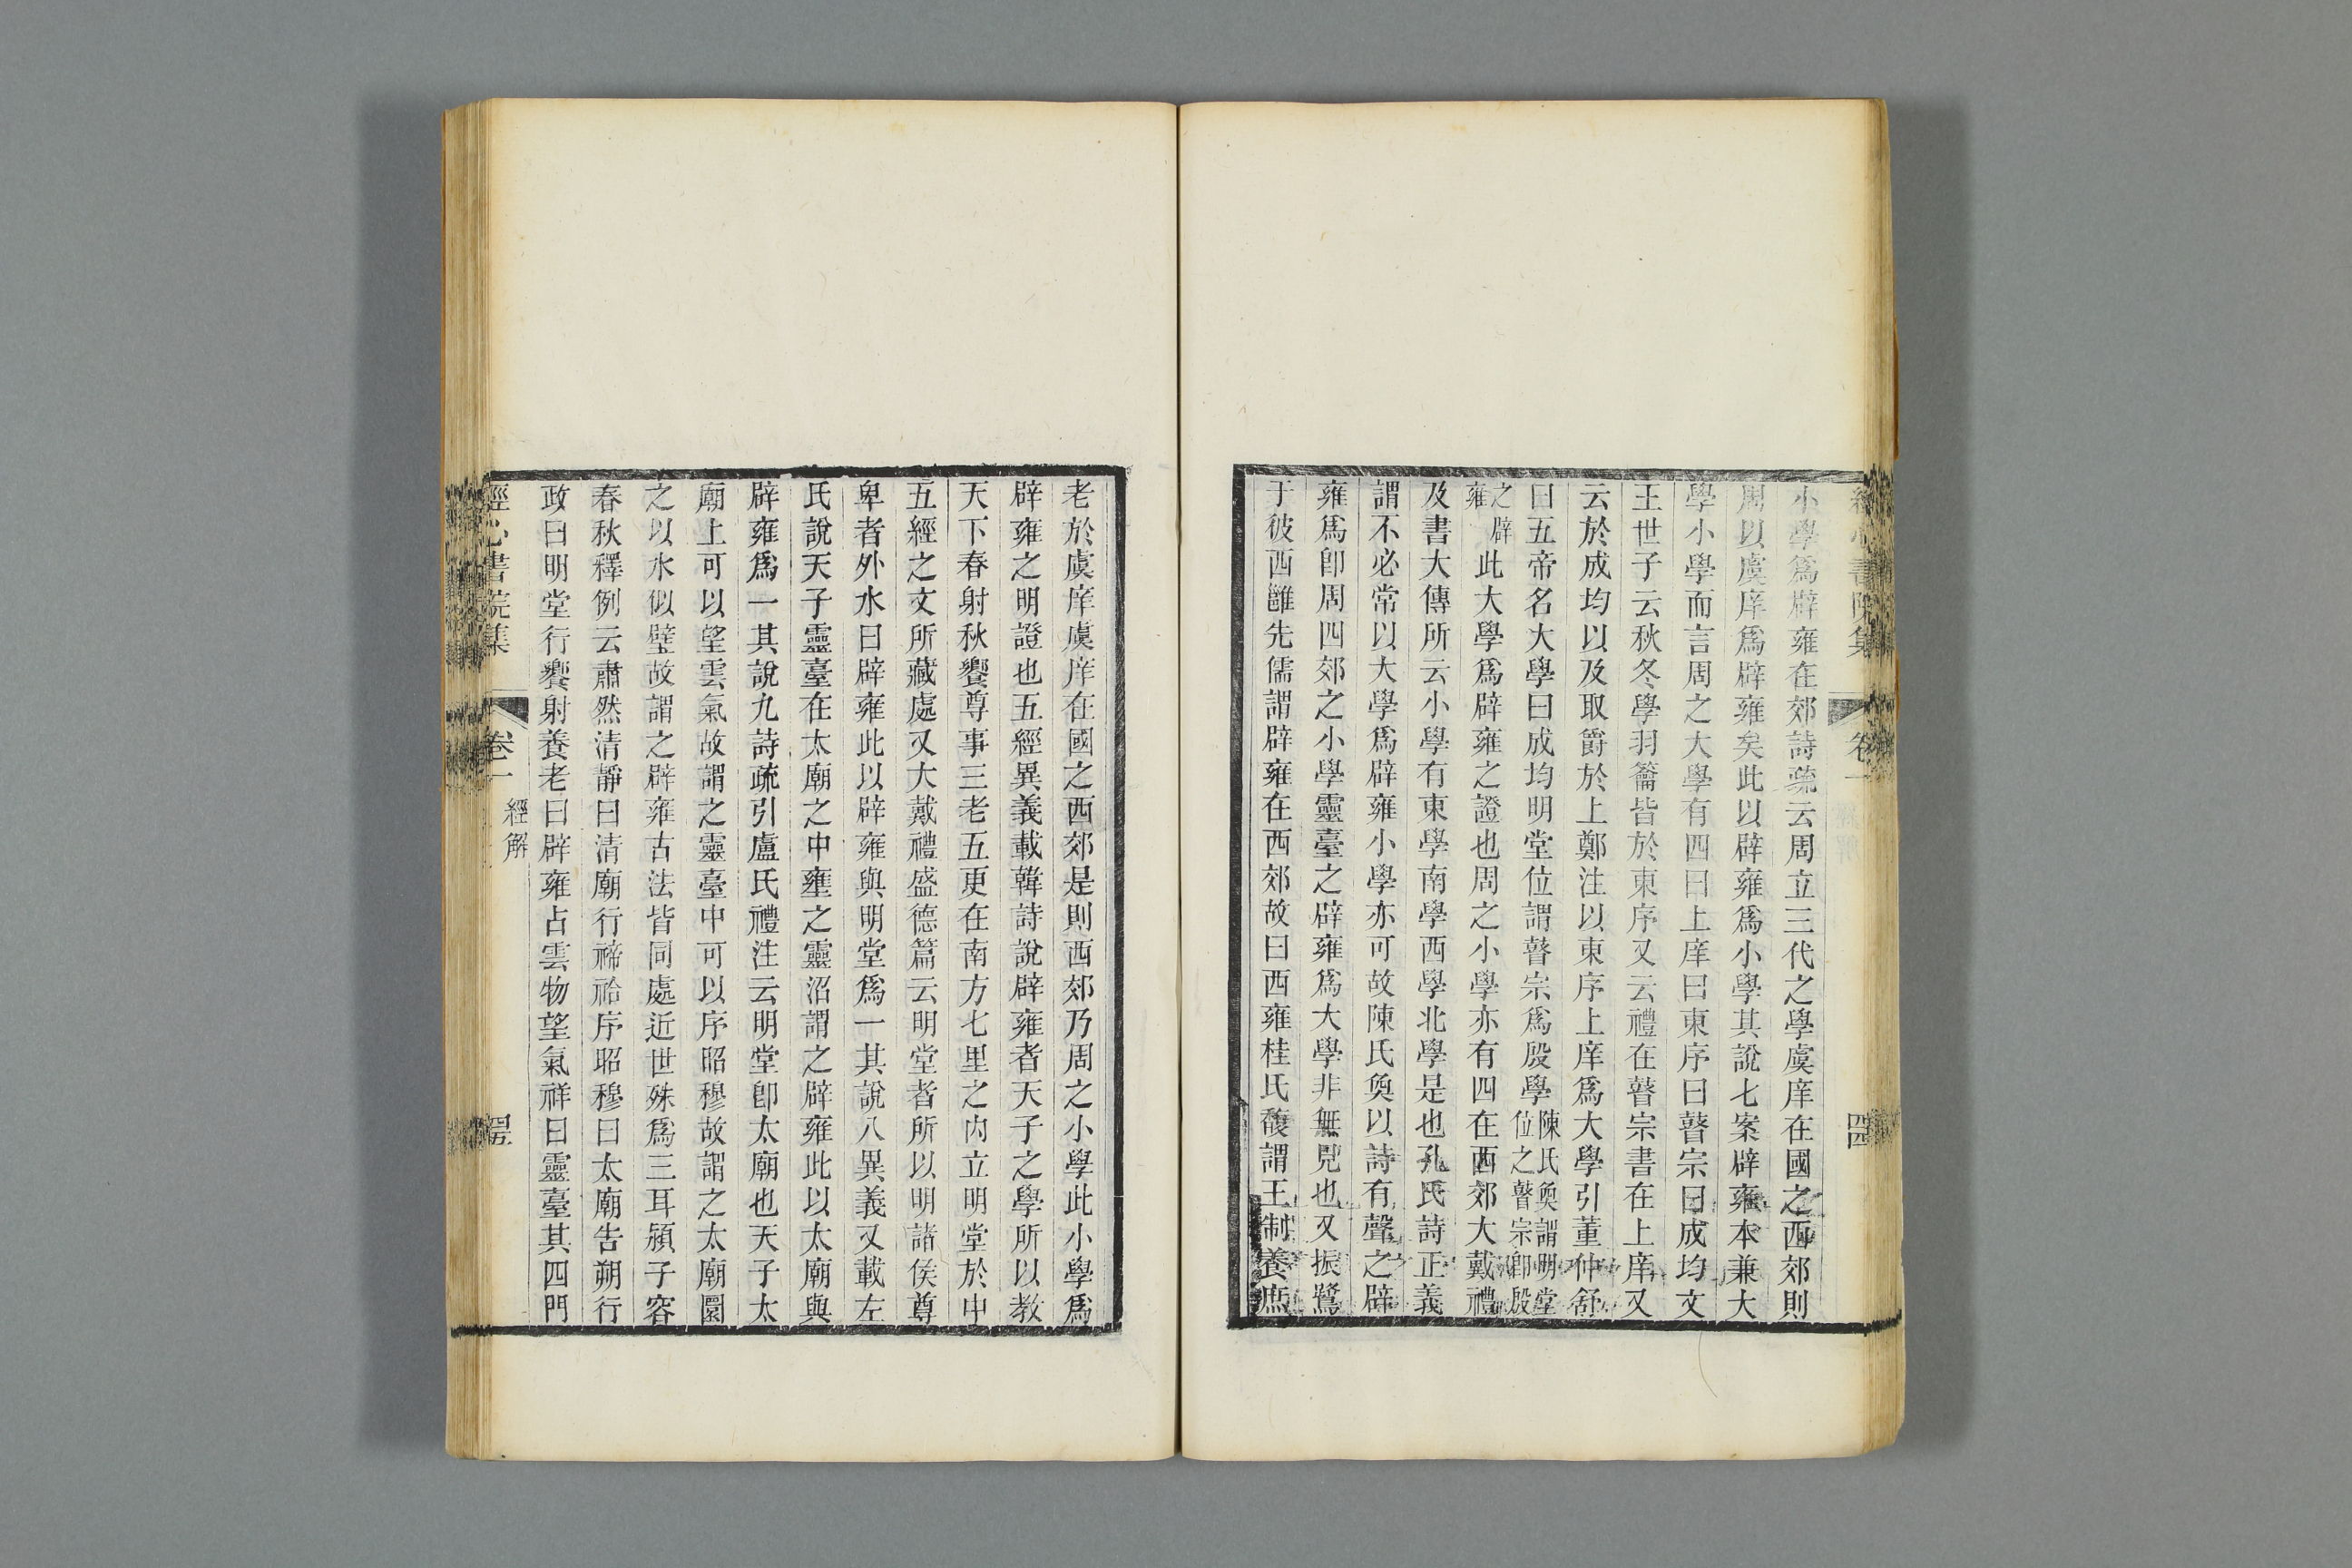 經心書院集 卷一 經解 四四
小學爲辟雍在郊詩疏云周立三代之學虞庠在國之西郊則
周以虞庠爲辟雍矣此以辟雍爲小學其說七案辟雍本兼大
學小學而言周之大學有四曰上庠曰東序曰瞽宗曰成均文
王世子云秋冬學羽籥皆於東序又云禮在瞽宗書在上庠又
云於成均以及取爵於上鄭注以東序上庠爲大學引董仲舒
曰五帝名大學曰成均明堂位謂瞽宗爲殷學陳氏奐謂明堂位之瞽宗卽殷
之辟雍此大學爲辟雍之證也周之小學亦有四在西郊大戴禮
及書大傳所云小學有東學南學西學北學是也孔氏詩正義
謂不必常以大學爲辟雍小學亦可故陳氏奐以詩有聲之辟
雍爲卽周四郊之小學靈臺之辟雍爲大學非無見也又振鷺
于彼西雝先儒謂辟雍在西郊故曰西雍桂氏馥謂王制養庶
老於虞庠虞庠在國之西郊是則西郊乃周之小學此小學爲
辟雍之明證也五經異義載韓詩說辟雍者天子之學所以教
天下春射秋饗尊事三老五更在南方七里之內立明堂於中
五經之文所藏處又大戴禮盛德篇云明堂者所以明諸侯尊
卑者外水曰辟雍此以辟雍與明堂爲一其說八異義又載左
氏說天子靈臺在太廟之中壅之靈沼謂之辟雍此以太廟與
辟雍爲一其說九詩疏引盧氏禮注云明堂卽太廟也天子太
廟上可以望雲氣故謂之靈臺中可以序昭穆故謂之太廟圜
之以水似璧故謂之辟雍古法皆同處近世殊爲三耳潁子容
春秋釋例云肅然清靜曰清廟行禘祫序昭穆曰太廟告朔行
政曰明堂行饗射養老曰辟雍占雲物望氣祥曰靈臺其四門
經心書院集 卷一 經解 四五